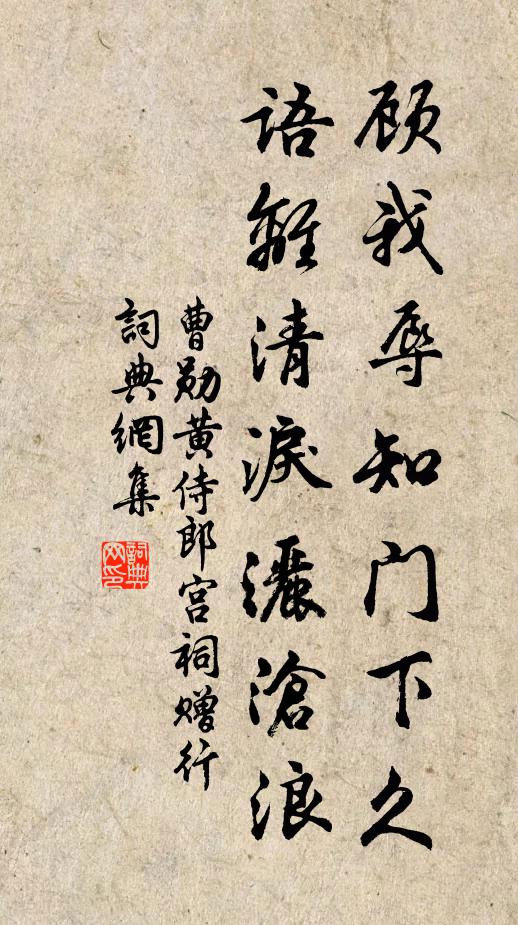 顾我辱知门下久
语離清淚灑滄浪
曹勛黄侍郎宫祠赠行
詞典網集
詞典网印